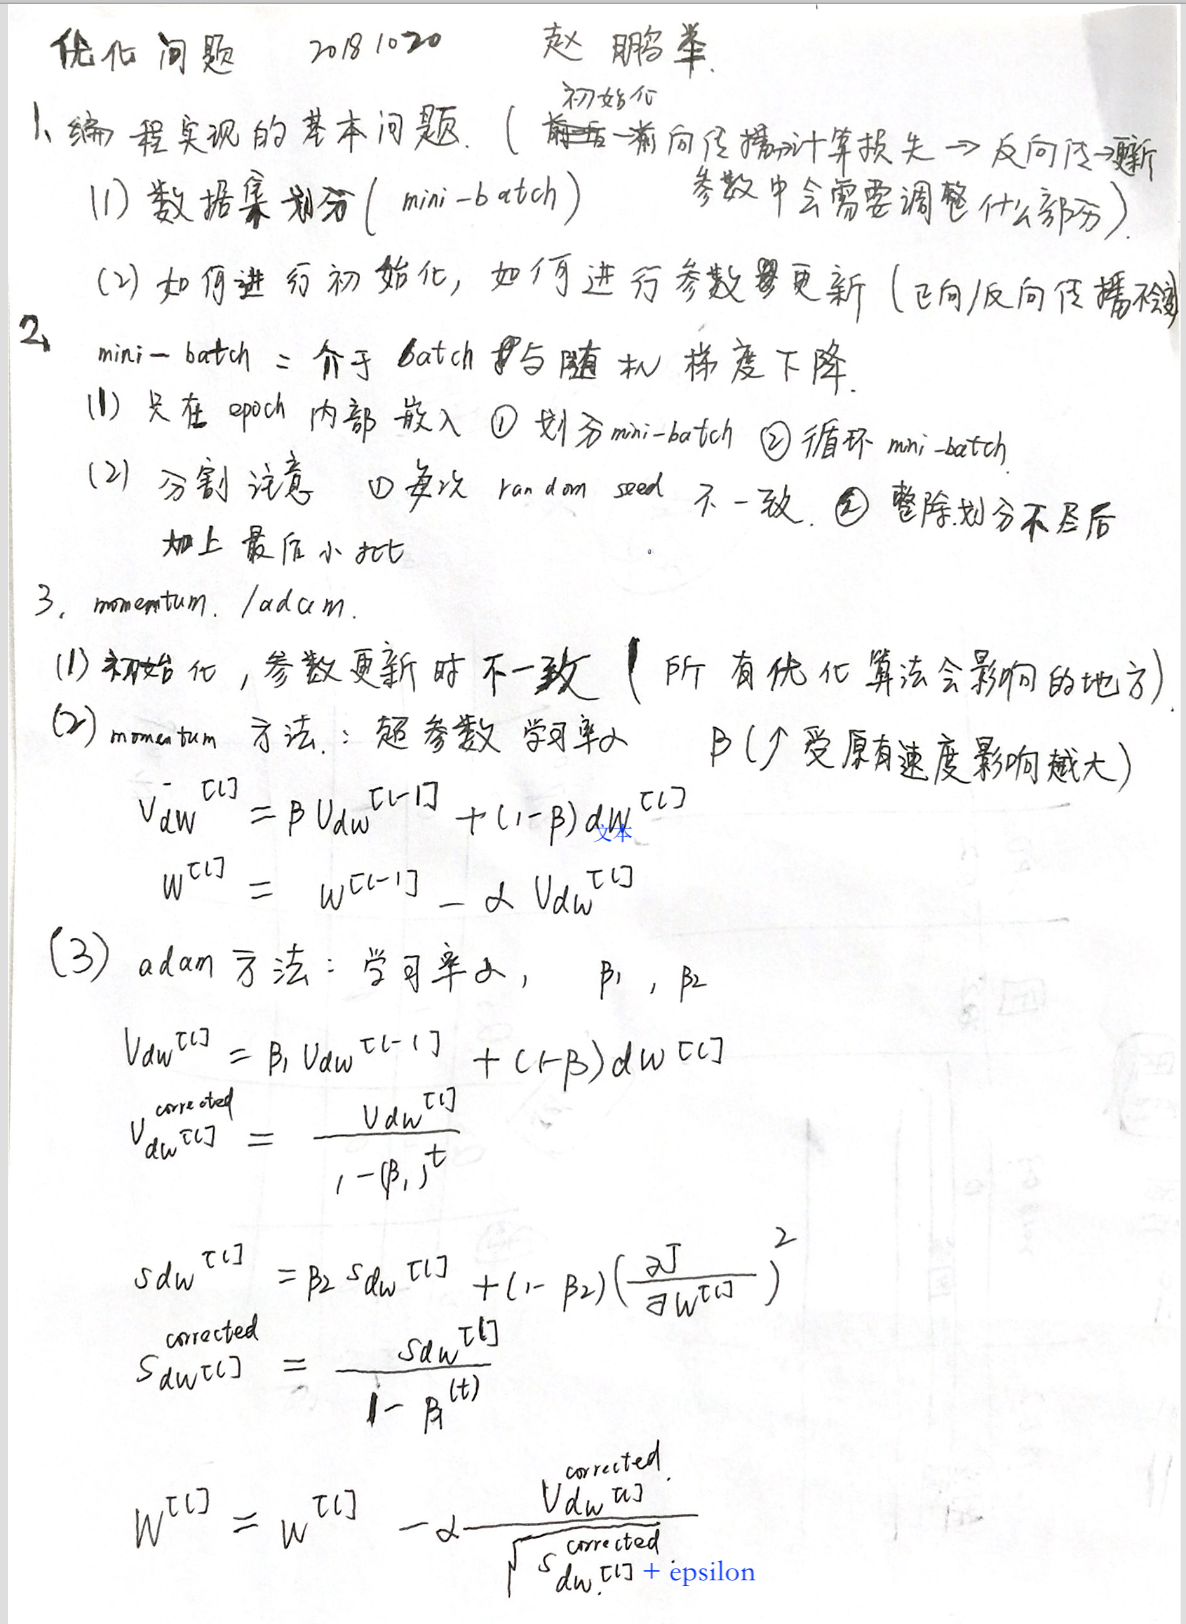 优化问题 20181020 赵鹏举
1、编程实现的基本问题.(初始化→前向传播→计算损失→反向传→更新
参数中会需要调整什么部分).
(1) 数据集划分( mini-batch )
(2) 如何进行初始化, 如何进行参数更新 (正向/反向传播不会变
2、
mini-batch = 介于 batch 与随机梯度下降.
(1) 只在 epoch 内部嵌入 ① 划分 mini-batch ② 循环 mini-batch.
(2) 分割注意 ① 每次 random seed 不一致. ② 整除划分不尽后
加上最后小 set
3. momentum. /adam.
(1) 初始化, 参数更新时不一致 ( 所有优化算法会影响的地方).
(2) momentum 方法: 超参数 学习率α β (↑ 受原有速度影响越大)
V_dW^[l] = β V_dW^[l-1] + (1-β) dW^[l]
文本
W^[l] = W^[l-1] - α V_dW^[l]
(3) adam 方法: 学习率α, β1, β2
V_dW^[l] = β1 V_dW^[l-1] + (1-β) dW^[l]
V_dW^[l]^corrected = V_dW^[l] / (1-(β1)^t)
S_dW^[l] = β2 S_dW^[l] + (1-β2) (∂J / ∂W^[l])^2
S_dW^[l]^corrected = S_dW^[l] / (1-β1^(t))
W^[l] = W^[l] - α V_dW^[l]^corrected / √S_dW^[l]^corrected + epsilon